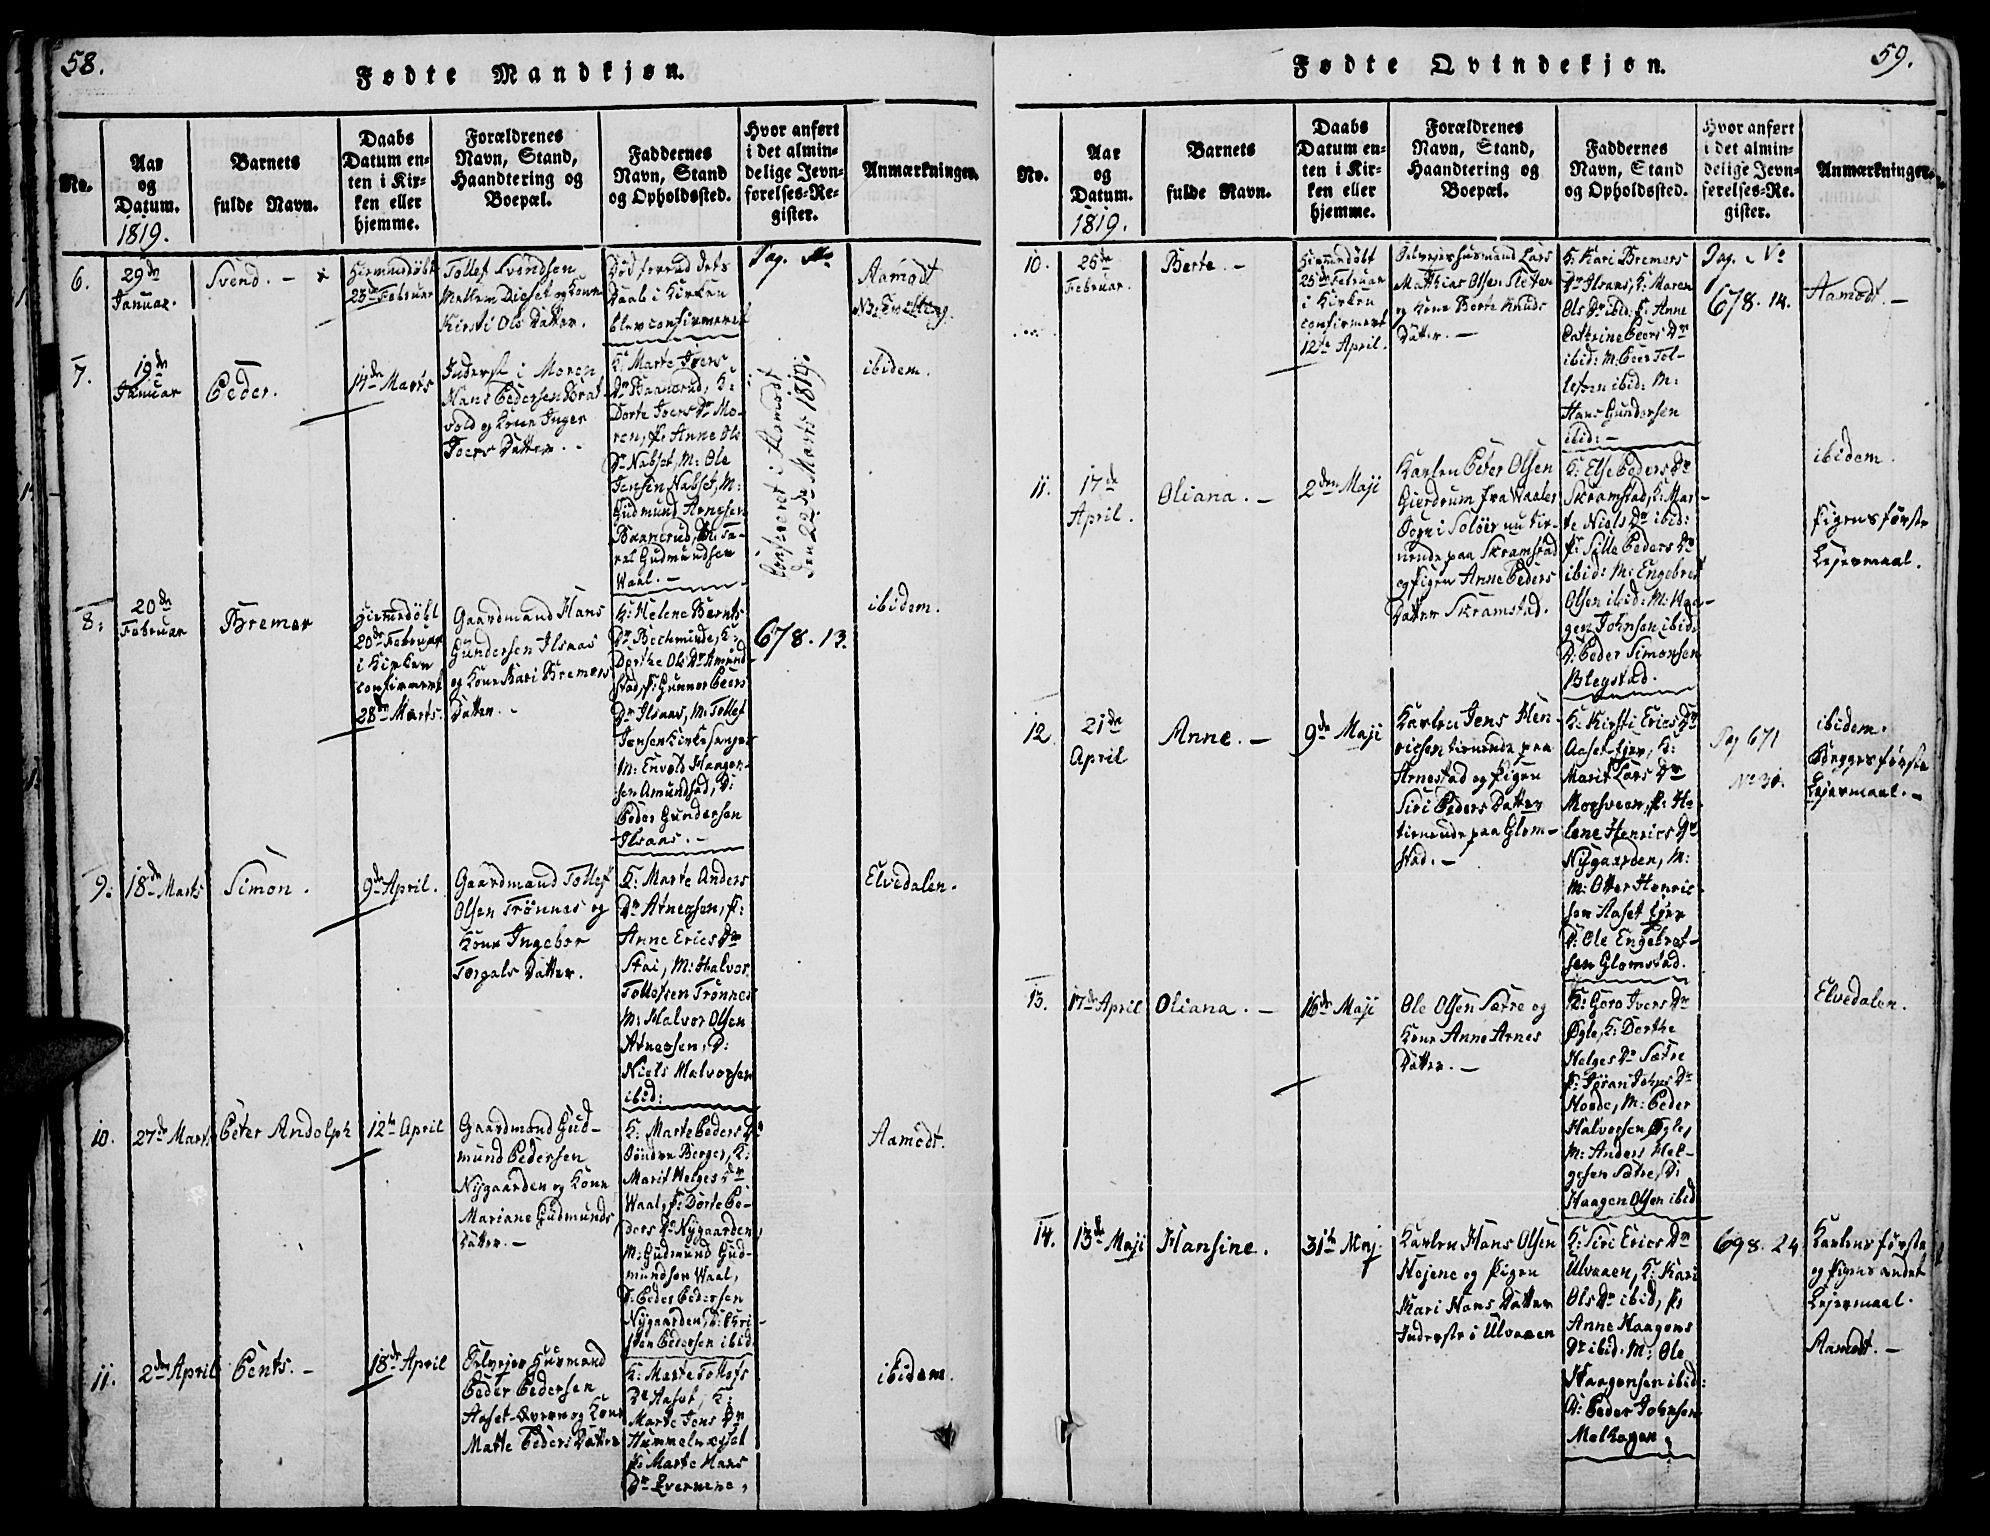 58.
Fødte Mandkjøn.
No.
Aar
og
Datum.
1819.
Barnets
fulde Navn.
Daabs
Datum en-
ten i Kir-
ken eller
hjemme.
Forældrenes
Navn, Stand,
Haandtering og
Boepæl.
Faddernes
Navn, Stand
og Opholdssted.
Hvor anført
i det almin-
delige Jevn-
førelses-Re-
gister.
Anmærkninger.
6.
29de
Januar.
Svend. -
Hiemmedøbt
23de Februar
Tollef Svendsen
Mellem Digset og Kone
Kirsti Ols Datter.
Død forend dets
Daab i Kirken
blev confirmeret
Pag. No
Aamodt
NB: Tvilling.
7.
19de
Januar
Peder.
14de Marts
Inderst i Moren
Hans Pedersen Brat-
vold og Kone Inger
Ivers Datter. -
K: Marte Ivers
Dr Baanerud, K:
Dorte Ivers Dr Mo-
ren, P: Anne Ols
Dr Nabset, M: Ole
Jensen Nabset, M:
Gudmund Arnesen
Baanerud,
Gudmundsen
Waal. -
Confereret i Aamodt
den 22de Marts 1819.
ibidem.
8:
20de
Februar
Bremer
Hiemmedøbt
20de Februar
i Kirken
confirmeret
28de Marts.
Gaardmand Hans
Gundersen Ilsaas
og Kone Kari Bremers
Datter. -
K: Helene Bernts
Dr Bechminde, K:
Dorthe Ols Dr Amund-
stad, P: Gunnor Peers
Dr Ilsaas, M: Tollef
Jensen Kirkesanger
M: Envold Haagen-
sen Amundstad, D:
Peder Gundersen
Ilsaas. -
678. 13.
ibidem.
9:
18de Marts
Simon.
9de April.
Gaardmand Tollef
Olsen Trønnes og
Kone Ingebor
Torgals Datter.
K: Marte Anders
Dr Atneosen, P:
Anne Erics Dr
Stai, M: Halvor
Tollefsen Trønnes
M: Halvor Olsen
Atneosen, D:
Niels Halvorsen
ibid:
Elvedalen.
10.
27de Marts
Peter Andolph
12te April
Gaardmand Gud-
mund Pedersen
Nygaarden og Kone
Mariane Gudmunds
Datter. -
K: Marte Peders Dr
Søndre Berger, K:
Marit Helges Dr
Waal, P: Dorte Pe-
ders Dr Nygaarden,
M: Gudmund Gud-
mundsen Waal,
D: Peder Pedersen
Nygaarden, D: Chri-
sten Pedersen ibid.
Aamodt.
11.
2den April
Pents. -
18de April
Selvejer Husmand
Peder Pedersen
Aaset-Evren og Kone
Marte Peders Datter
K: Marte Tollefs
Dr Aaset, K:
Marte Jens Dr
Hummelvæssel
P: Marte Hans
Dr Evernene,
ibidem.
59.
Fødte Qvindekjøn.
No.
Aar
og
Datum.
1819.
Barnets
fulde Navn.
Daabs
Datum en-
ten i Kir-
ken eller
hjemme.
Forældrenes
Navn, Stand,
Haandtering og
Boepæl.
Faddernes
Navn, Stand
og Opholdssted.
Hvor anført
i det almin-
delige Jevn-
førelses-Re-
gister.
Anmærkninger.
10.
25de
Februar.
Berte. -
Hiemmedøbt
25de Februar
i Kirken
confirmert
12te April.
Selvejerhusmand Lars
Matthias Olsen Sletten
og Kone Berte Knuds
Datter. -
K: Kari Bremers
Dr Ilsaas, K: Maren
Ols Dr ibid: P: Anne
Cathrine Peers Dr
ibid: M: Peer Tol-
lefsen ibid: M:
Hans Gundersen
ibid: -
Pag. No
678. 14.
Aamodt. -
11.
17de
April.
Oliana. -
2den Maji
Karlen Peter Olsen
Gierdrum fra Waaler
Sogn i Soløer nu tie-
nende paa Skramstad
og Pigen Anne Peders
Datter Skramstad.
K: Else Peders Dr
Skramstad, K: Mar-
te Niels Dr ibid:
P: Sille Peders Dr
ibid: M: Engebret
Olsen ibid: M: Haa-
gen Johnsen ibid:
D: Peder Simonsen
Blegstad.
ibidem.
Pigens første
Lejermaal.
12
21de
April
Anne. -
9de Maji
Karlen Jens Hen-
ricsen tienende paa
Arnestad og Pigen
Siri Peders Datter
tienende paa Glom-
stad. -
K: Kirsti Erics Dr
Aaset Ejer, K:
Marit Lars Dr
Morsveen, P: He-
lene Henrics Dr
Nygaarden, M:
M: Otter Henric-
sen Aaset Ejer
D: Ole Engebret-
sen Glomstad.
Pag 671
No 30.
ibidem.
Begges første
Lejermaal. -
13.
17de April
Oliana. -
16de Maji
Ole Olsen Sætre og
Kone Anne Arnes
Datter. -
K: Goro Ivers Dr
Øgle, K: Dorthe
Helges Dr Sætre
P: Jøran Johns Dr
Horde, M: Peder
Halvorsen Øgle,
M: Anders Hel-
gesen Sætre, D:
Haagen Olsen ibid
Elvedalen.
14.
13de Maji
Hansine.
31te Maj.
Karlen Hans Olsen
Hojene og Pigen
Kari Hans Datter
Inderste i Ulvaaen
K: Siri Erics Dr
Ulvaaen, K: Kari
Ols Dr ibid, P:
Anne Haagens
Dr ibid. M: Ole
Haagensen ibid:
D: Peder Johnsen
Melhagen;
698. 24
Karlens første
og Pigens andet
Lejermaal.
Aamodt. -